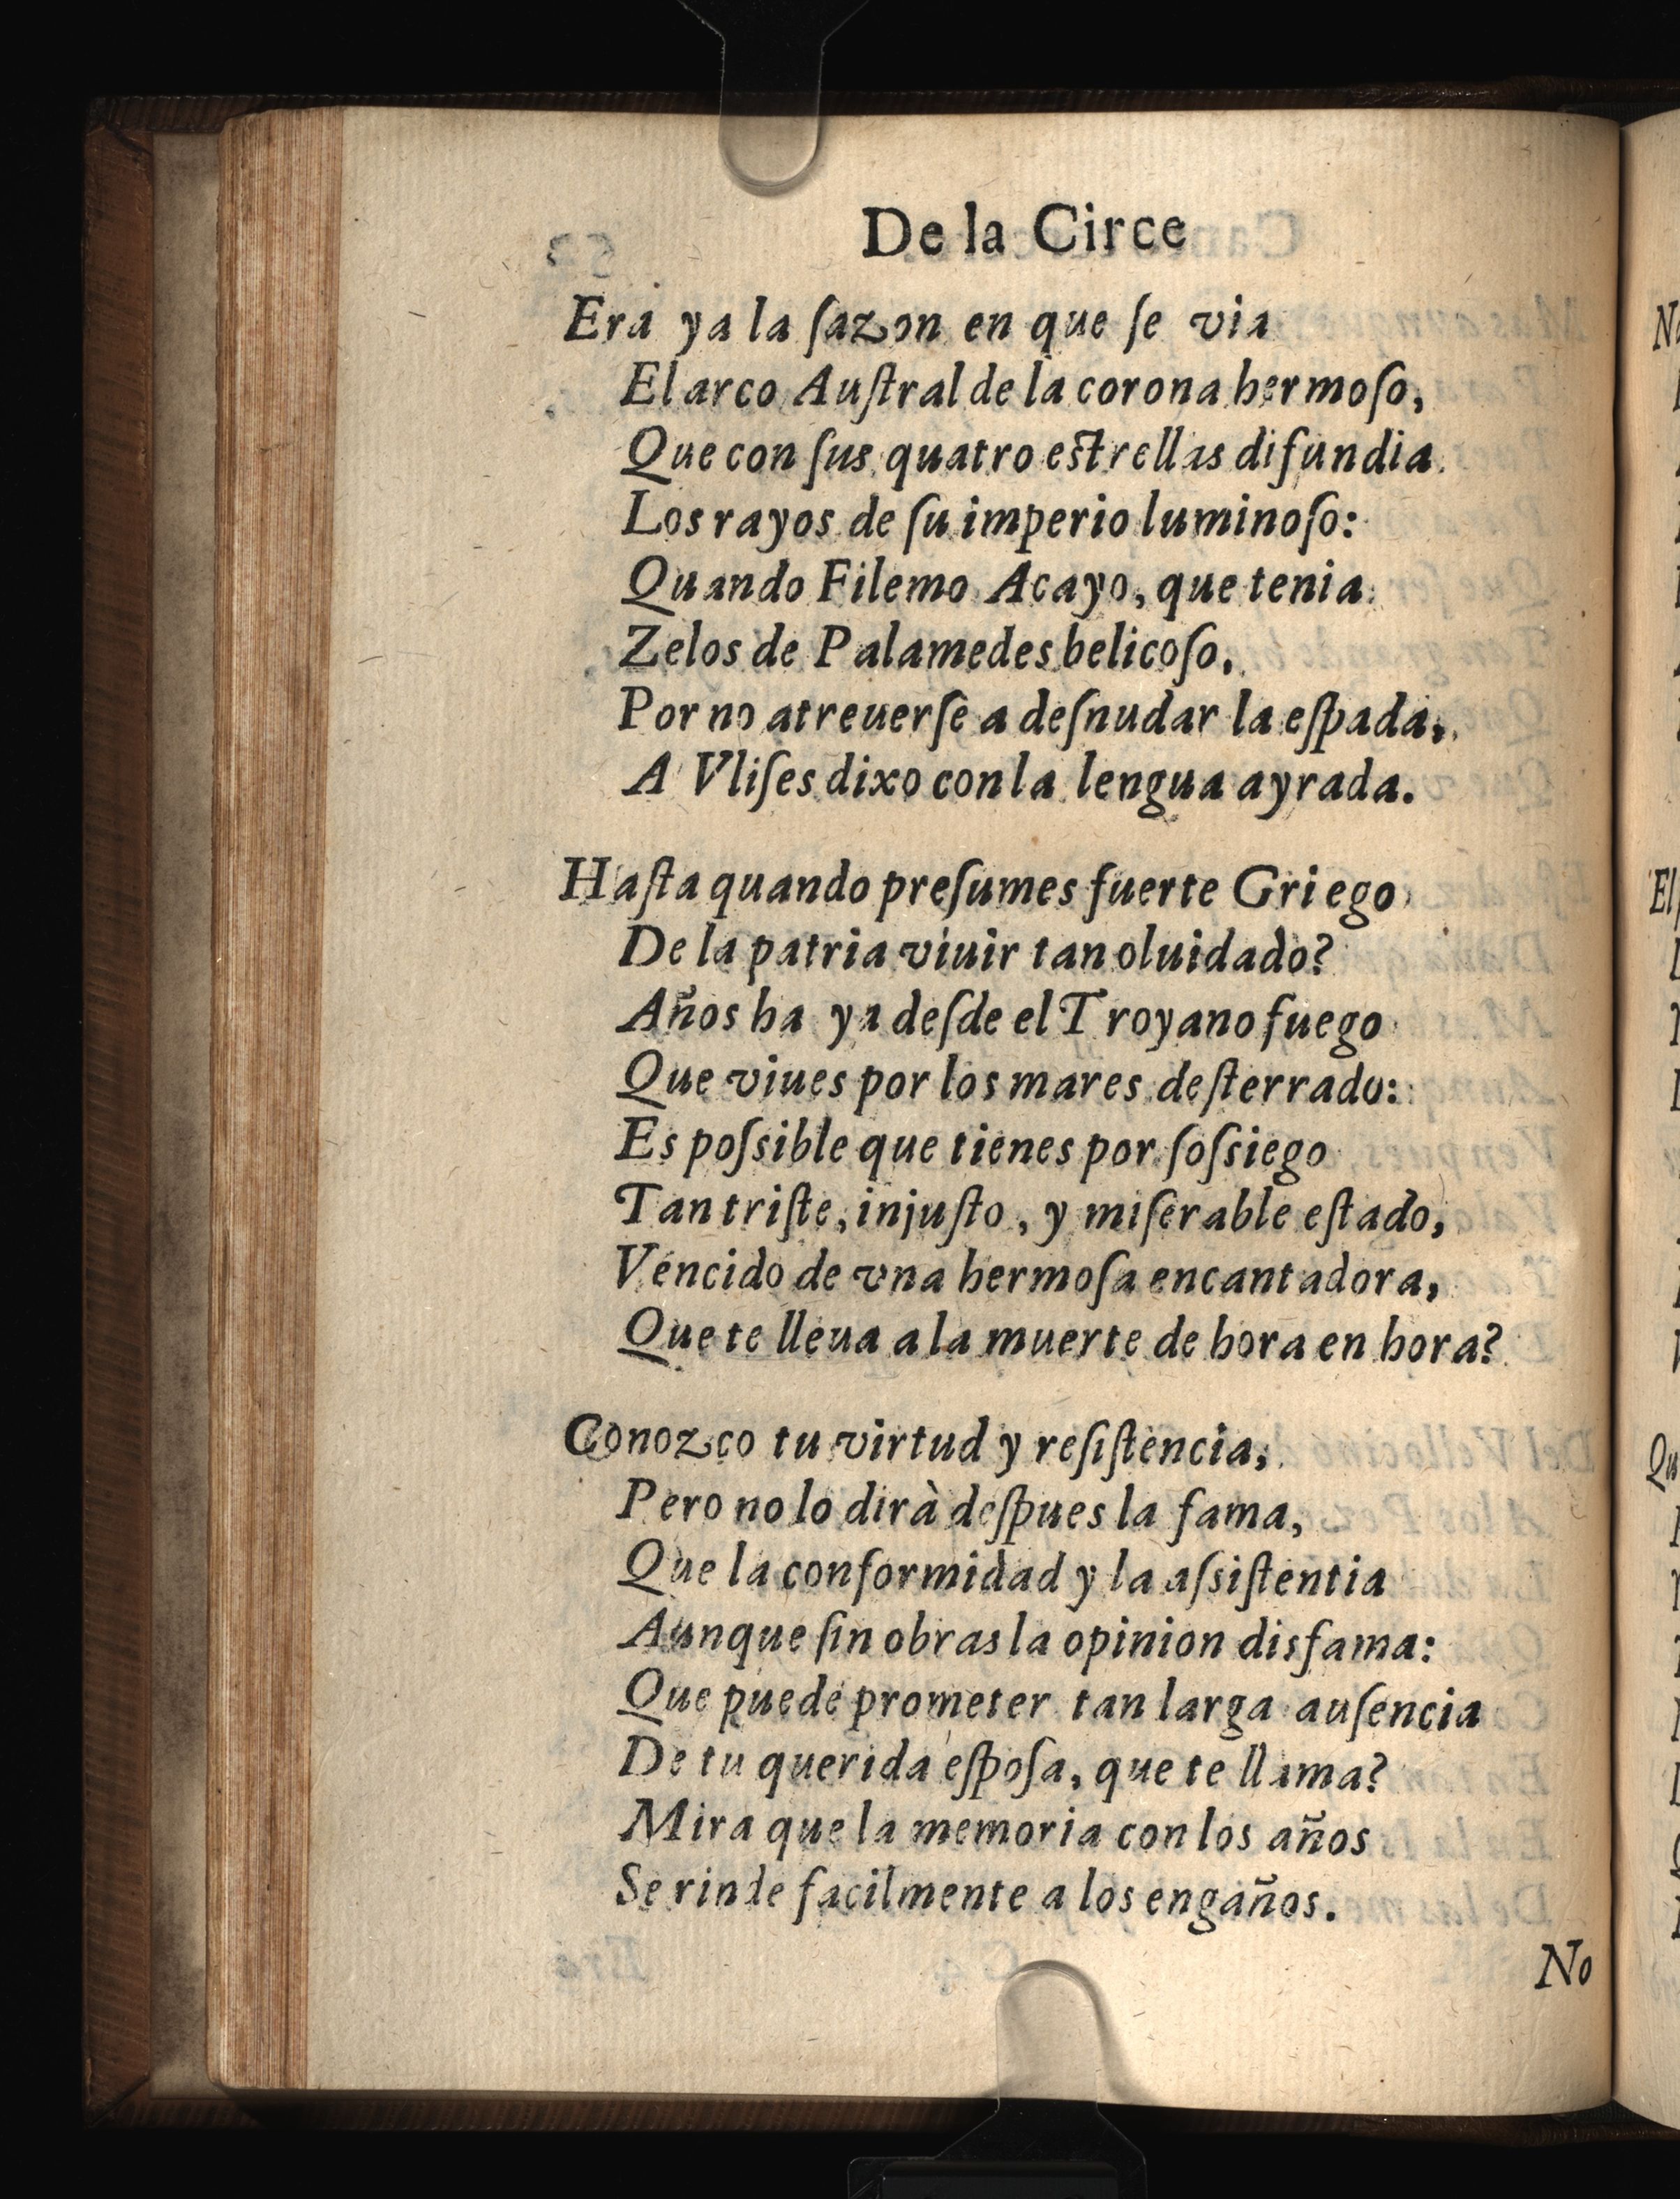 De la Circe
Era ya la ſazon en que ſe via
El arco Auſtral de la corona hermoſo,
Que con ſus quatro estrellas difundia
Los rayos de ſu imperio luminoſo:
Quando Filemo Acayo, que tenia
Zelos de Palamedes belicoſo,
Por no atreuerſe a deſnudar la eſpada,
A Vliſes dixo con la lengua ayrada.
Haſta quando preſumes fuerte Griego
De la patria viuir tan oluidado?
Años ha ya deſde el Troyano fuego
Que viues por los mares deſterrado:
Es poſsible que tienes por ſoſsiego
Tan triſte, injuſto, y miſerable eſtado,
Vencido de vna hermoſa encantadora,
Que te lleua a la muerte de hora en hora?
Conozco tu virtud y reſiſtencia,
Pero no lo dirà deſpues la fama,
Que la conformidad y la aſsiſtentia
Aunque ſin obras la opinion disfama:
Que puede prometer tan larga auſencia
De tu querida eſpoſa, que te llama?
Mira que la memoria con los años
Se rinde facilmente a los engaños.
No